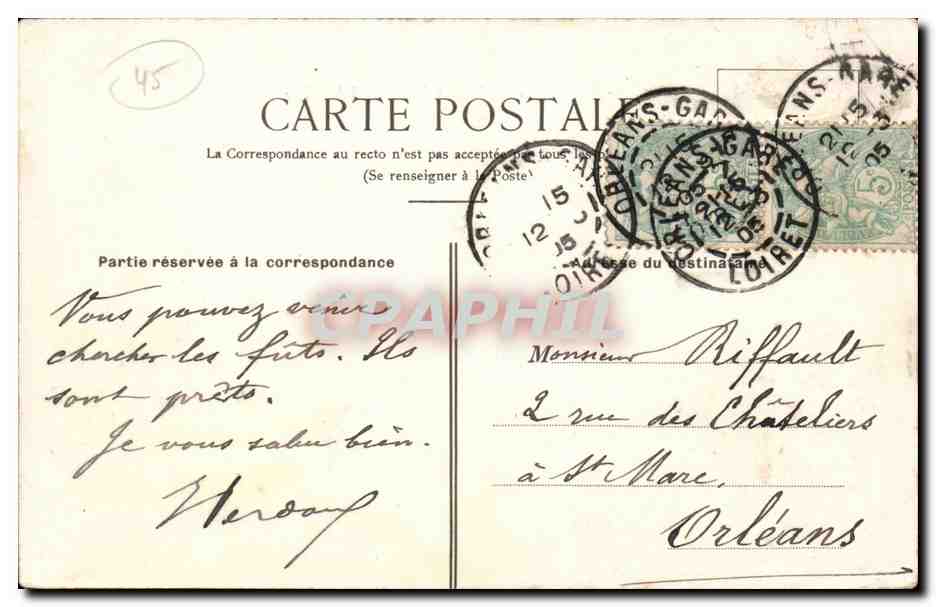 45
CARTE POSTALE
La Correspondance au recto n'est pas acceptée par tous les
(Se renseigner à la Poste)
ORLEANS-GARE
15
12
05
LOIRET
ORLEANS-GARE
ORLEANS-GARE
12
05
LOIRET
ORLEANS-GARE
21 15
12
05
5c
Partie réservée à la correspondance
Adresse du destinataire
Vous pouvez venir
chercher les fûts. Ils
sont prêts.
Je vous salue bien.
CPAPHIL
Monsieur Riffault
2 rue des Châteliers
à St Marc,
Orléans